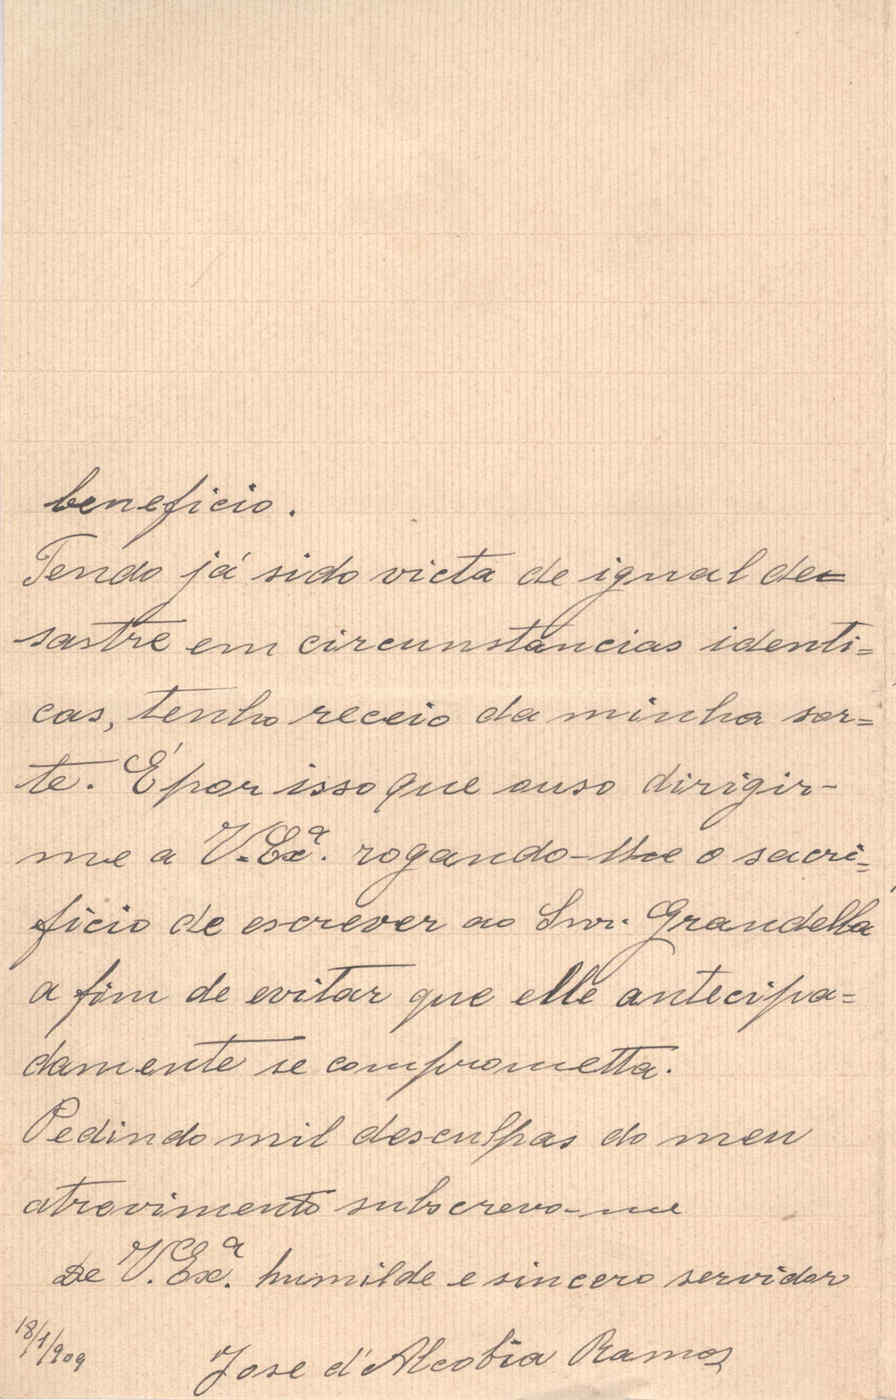 beneficio.
Tendo já sido victa de igual de=
sastre em circunstancias identi=
cas, tenho receio da minha sor=
te. É por isso que ouso dirigir-
me a V. Exª. rogando-lhe o sacri=
ficio de escrever ao Snr. Grandella
a fim de evitar que elle antecipa=
damente se comprometta.
Pedindo mil desculpas do meu
atrevimento subscrevo-me
De V. Exª. humilde e sincero servidor
18/1/909
Jose d'Alcobia Ramos